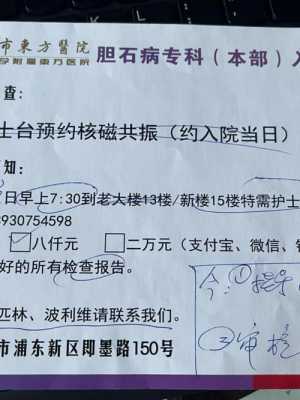 市東方醫院 胆石病专科（本部）入
学附属东方医院
查：
士台预约核磁共振（约入院当日）
知：
日早上7:30到老大楼13楼/新楼15楼特需护士
3930754598
☑八仟元 □二万元（支付宝、微信、
好的所有检查报告。
匹林、波利维请联系我们。
今：①
②
市浦东新区即墨路150号